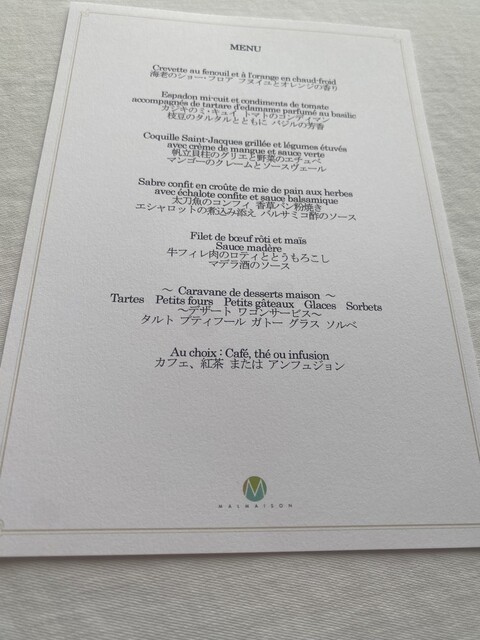 MENU
Crevette au fenouil et à l'orange en chaud-froid
海老のショー・フロア フヌイユとオレンジの香り
Espadon mi-cuit et condiments de tomate
accompagnés de tartare d'edamame parfumé au basilic
カジキのミ・キュイ トマトのコンディマン
枝豆のタルタルとともに バジルの芳香
Coquille Saint-Jacques grillée et légumes étuvés
avec crème de mangue et sauce verte
帆立貝柱のグリエと野菜のエチュベ
マンゴーのクレームとソースヴェール
Sabre confit en croûte de mie de pain aux herbes
avec échalote confite et sauce balsamique
太刀魚のコンフィ 香草パン粉焼き
エシャロットの煮込み添え バルサミコ酢のソース
Filet de bœuf rôti et maïs
Sauce madère
牛フィレ肉のロティととうもろこし
マデラ酒のソース
～ Caravane de desserts maison ～
Tartes Petits fours Petits gâteaux Glaces Sorbets
～デザート ワゴンサービス～
タルト プティフール ガトー グラス ソルベ
Au choix : Café, thé ou infusion
カフェ、紅茶 または アンフュジョン
M
MALMAISON